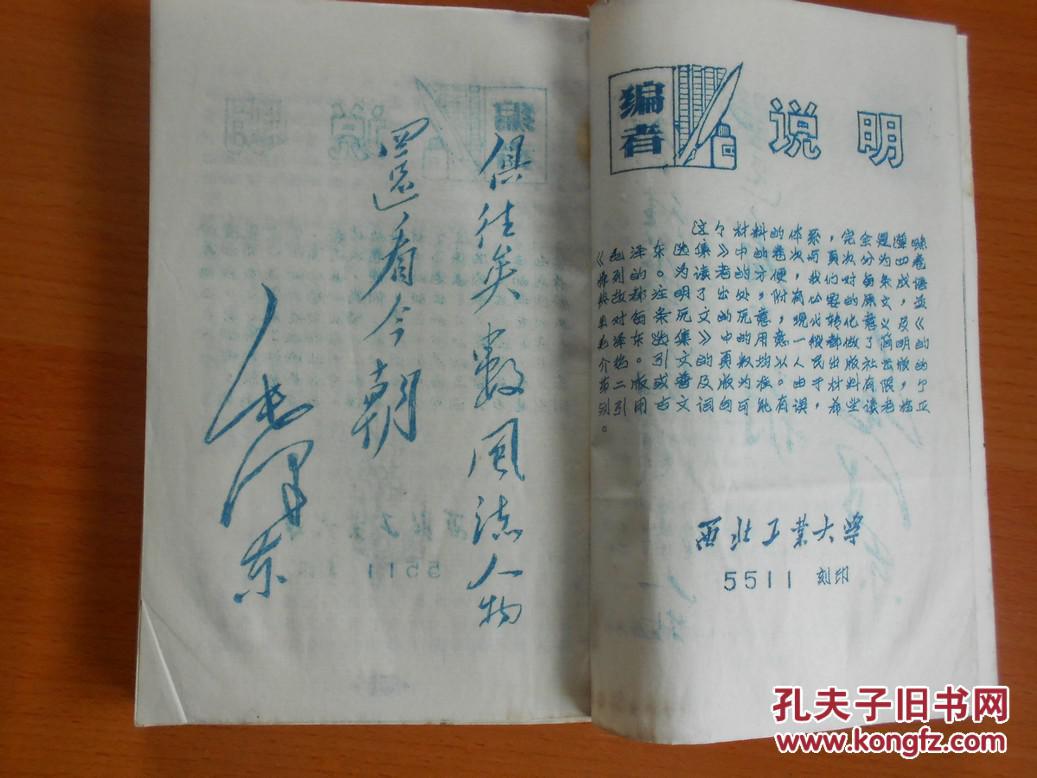 俱往矣數风流人物
還看今朝
毛泽东
编者说明
这个材料的体系，完全是遵照
《毛泽东选集》中的卷次与页次分为四卷
排列的。为读者的方便，我们对每条成语
典故都注明了出处，附有必要的原文，并
且对每条原文的原意，现代转化意义及《
毛泽东选集》中的用意一般都做了简明的
介绍。引文的页数均以人民出版社出版的
第二版或普及版为准。由于材料有限，个
别引用古文词句可能有误，希望读者指正
。
西北工业大学
5511 刻印
孔夫子旧书网
www.kongfz.com